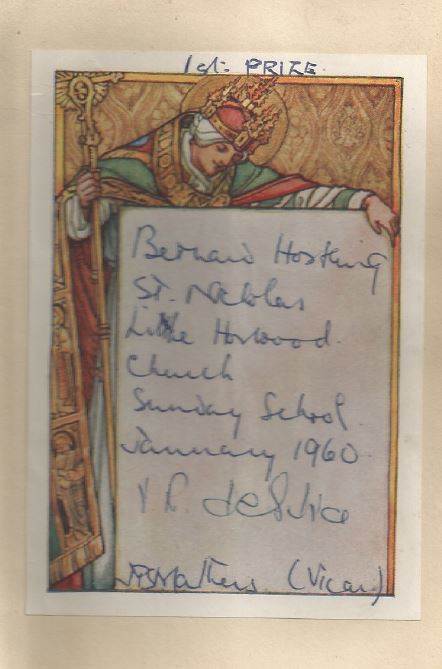 1st. PRIZE.
Bernard Hosking
St. Nicholas
Little Horwood.
Church
Sunday School.
January 1960.
(Vicar)